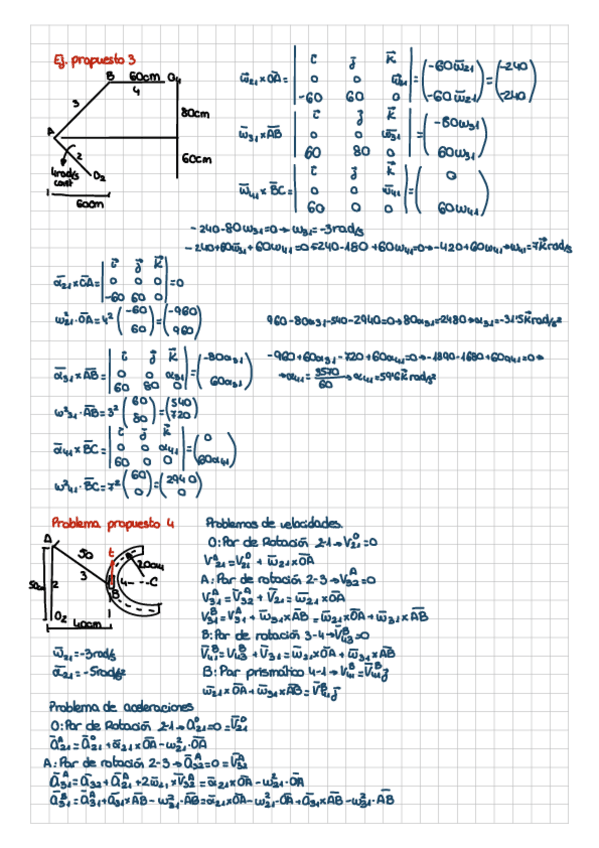 Ej. propuesto 3
B 60cm O4
4
3
80cm
A
2
60cm
4rad/s
const
O2
60cm
ω̄21 x ŌA = | i j k | 0 0 ω̄21 | -60 60 0 | = (-60ω̄21 -60ω̄21) = (-240 -240)
ω̄31 x ĀB = | i j k | 0 0 ω̄31 | 60 80 0 | = (-80ω31 60ω31)
ω̄41 x B̄C = | i j k | 0 0 ω̄41 | 60 0 0 | = (0 60ω41)
-240-80ω31=0→ω31=-3rad/s
-240+60ω̄31+60ω41=0=-240-180+60ω41=0→-420+60ω41→ω41=7k rad/s
ᾱ21 x ŌA = | i j k | 0 0 0 | -60 60 0 | = 0
ω²21·ŌA=4² (-60 60) = (-960 960)
960-80α31-540-2940=0→80α31=2480→α31=-31'5k rad/s²
ᾱ31 x ĀB = | i j k | 0 0 α31 | 60 80 0 | = (-80α31 60α31)
-960+60α31-720+60α41=0→-1890-1680+60α41=0→
→α41= 3570/60 →α41=59'6k rad/s²
ω²31·ĀB=3² (60 80) = (540 720)
ᾱ41 x B̄C = | i j k | 0 0 α41 | 60 0 0 | = (0 60α41)
ω²41·B̄C=7² (60 0) = (2940 0)
Problema propuesto 4
A 50 t
20cm
3
50cm 2 4 C
B
O2
40cm
ω̄21=-3rad/s
ᾱ21=-5rad/s²
Problemas de velocidades.
O:Par de Rotación 2-1→V̄O21=0
V̄A21=V̄O21 + ω̄21xŌA
A:Par de rotación 2-3→V̄A32=0
V̄A31=V̄A32+V̄21=ω̄21xŌA
V̄B31=V̄A31+ω̄31xĀB=ω̄21xŌA+ω̄31xĀB
B:Par de rotación 3-4→V̄B43=0
V̄B41=V̄B43+V̄31=ω̄21xŌA+ω̄31xĀB
B:Par prismático 4-1→V41=V̄B41j
ω̄21xŌA+ω̄31xĀB=V̄B41j
Problema de aceleraciones
O:Par de Rotación 2-1→āO21=0=V̄O21
āA21=āO21+ᾱ21xŌA-ω²21·ŌA
A:Par de rotación 2-3→āA32=0=V̄A32
āA31=ā32+āA21+2ω̄21xV̄A32=ᾱ21xŌA-ω²21·ŌA
āB31=āA31+ᾱ31xĀB-ω²31·ĀB=ᾱ21xŌA-ω²21·ŌA+ᾱ31xĀB-ω²31·ĀB